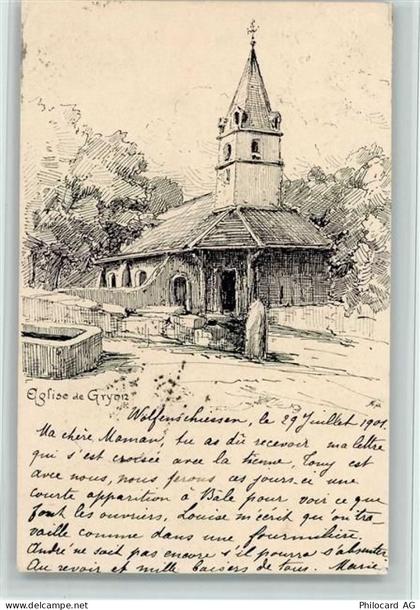 Eglise de Gryon
Wolfenschiessen, le 29 Juillet 1901.
Ma chère Maman, tu as dû recevoir ma lettre
qui s'est croisée avec la tienne, Tony est
avec nous, nous ferons ces jours-ci une
courte apparition à Bâle pour voir ce que
font les ouvriers, Louise m'écrit qu'on tra-
vaille comme dans une fourmilière.
André ne sait pas encore s'il pourra s'absenter
Au revoir et mille baisers de tous. Marie.
www.philocard.de © Philocard AG